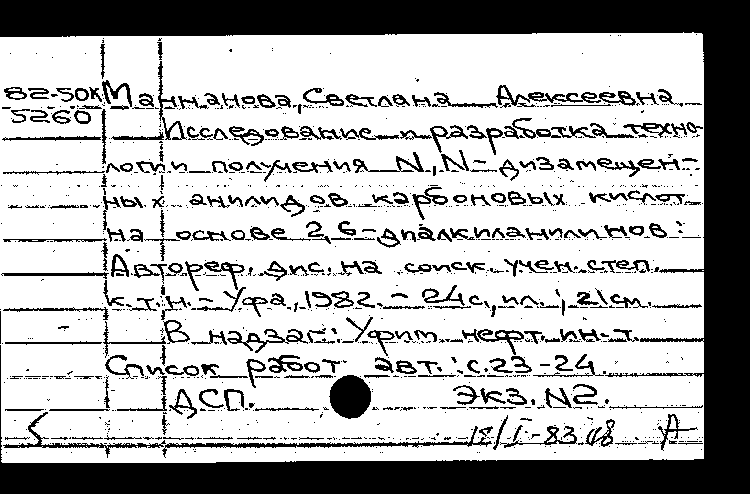 82-50к Маннанова, Светлана Алексеевна
5260
Исследование и разработка техно-
логии получения N,N-дизамещен-
ных анилидов карбоновых кислот
на основе 2,6-диалкиланилинов:
Автореф. дис. на соиск. учен. степ.
к.т.н. - Уфа, 1982. - 24с., ил.; 21см.
В надзаг.: Уфим. нефт. ин-т.
Список работ авт.: с.23-24.
ДСП. Экз. N2.